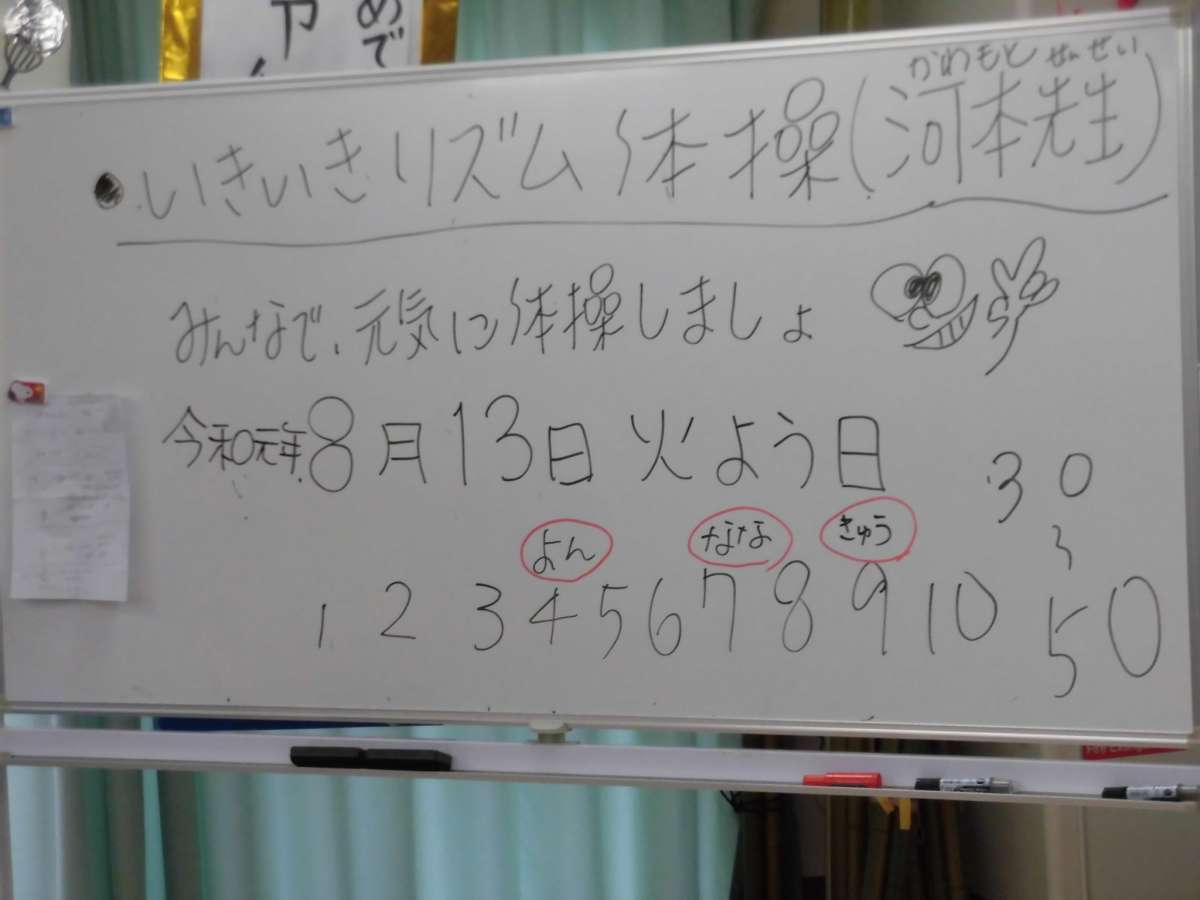 めで
かわもとせんせい
●いきいきリズム体操(河本先生)
みんなで、元気に体操しましょ
令和元年8月13日火よう日
30
〜
よん なな きゅう
1 2 3 4 5 6 7 8 9 10
50